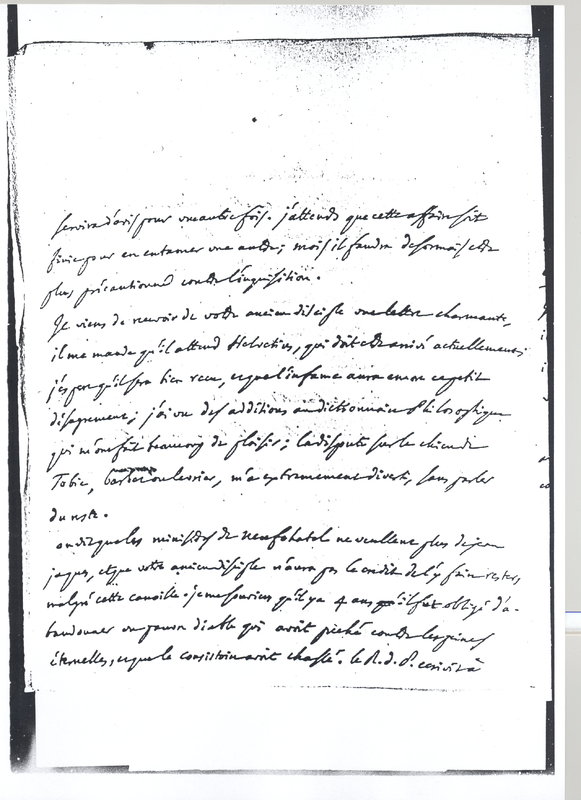 servira d'avis pour une autre fois. j'attends que cette affaire soit
finie pour en entamer une autre; mais il faudra desormais etre
plus précautionné contre l'inquisition.
Je viens de recevoir de votre ancien disciple une lettre charmante,
il me mande qu'il attend Helvetius, qui doit etre arrivé actuellement;
j'espere qu'il sera bien recu, et que l'infame aura encore ce petit
désagrement; j'ai vu des additions au dictionnaire Philosophique
qui m'ont fait beaucoup de plaisir; la dispute sur le chien de
Tobie, barbet ou levrier, m'a extremement diverti, sans parler
du reste.
on dit que les ministres de neufchatel ne veullent plus de jean
jaques, et que votre ancien disciple n'aura pas le credit de l'y faire rester,
malgré cette canaille. je me souviens qu'il y a 4 ans qu'il fut obligé d'a-
bandonner un pauvre diable qui avoit preché contre les peines
éternelles, et que le consistoire avoit chassé. le R. d. P. ecrivit à